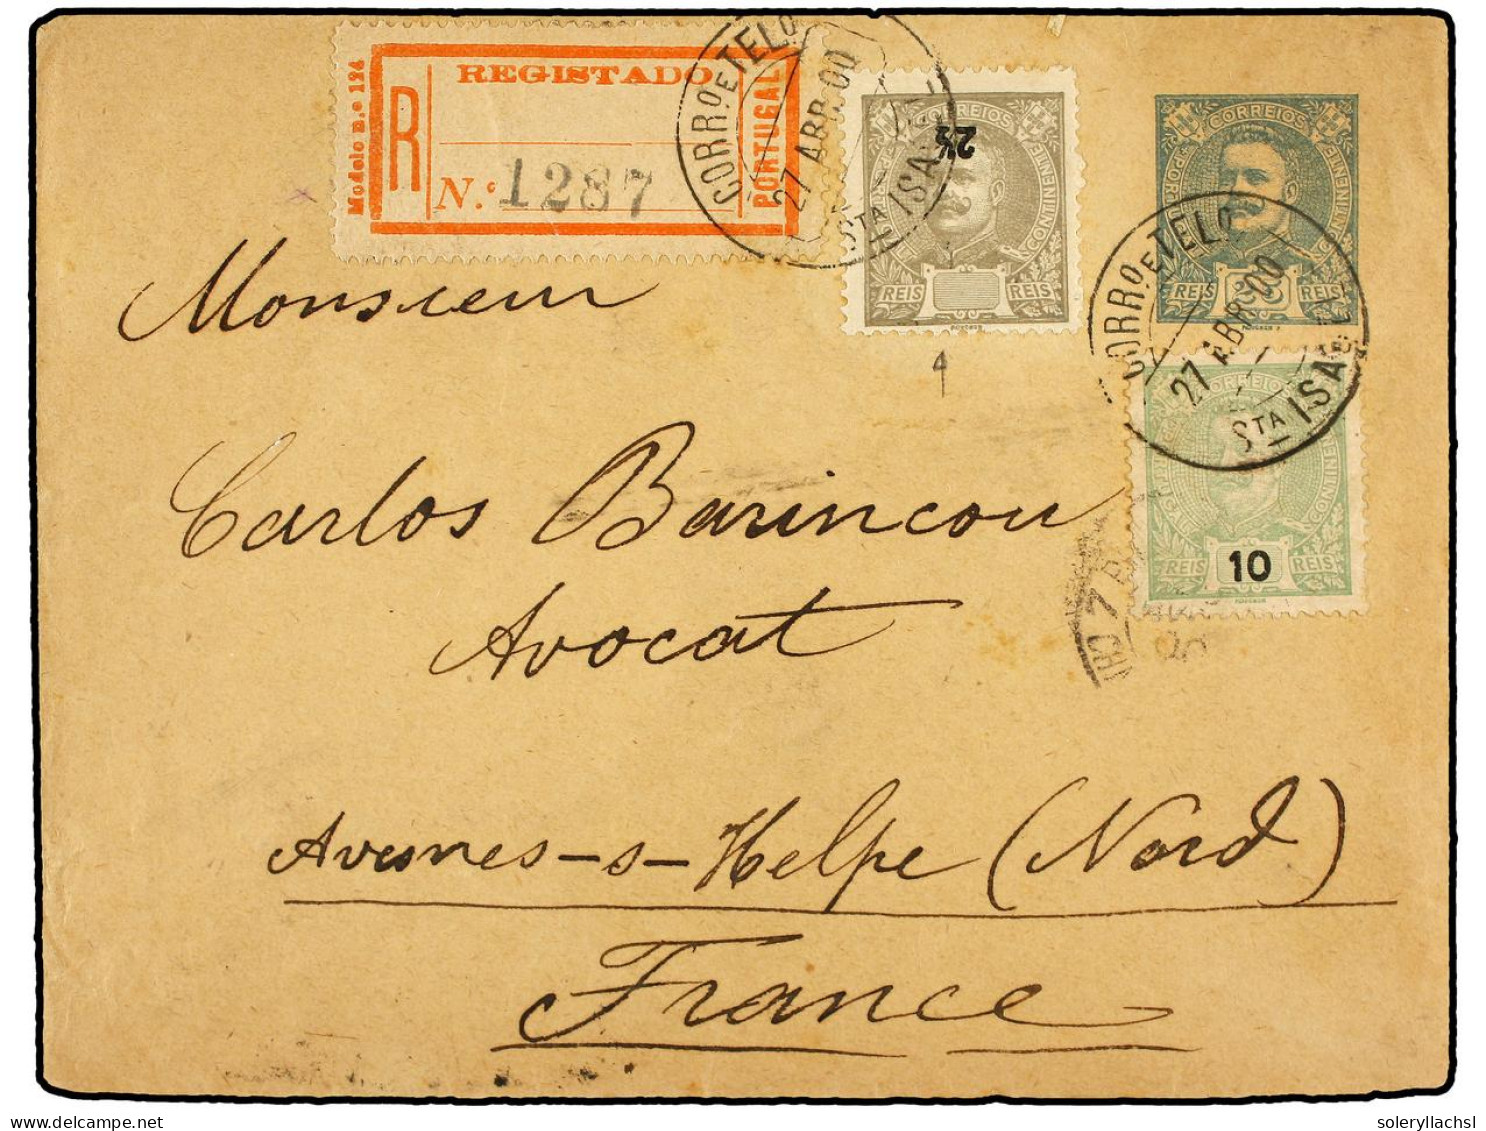 Modelo n.º 124
REGISTADO
R
N.º 1287
PORTUGAL
CORRO E TELO
27 ABR. 00
STA ISABEL
CORREIOS
2½
CONTINENTE
REIS REIS
CORREIOS
PORTUGAL
CONTINENTE
REIS REIS
CORRO E TELO
27 ABR 00
STA ISABEL
CORREIOS
CONTINENTE
REIS 10 REIS
Monsieur
Carlos Barincou
Avocat
Avesnes-s-Helpe (Nord)
France
soleryllachsl